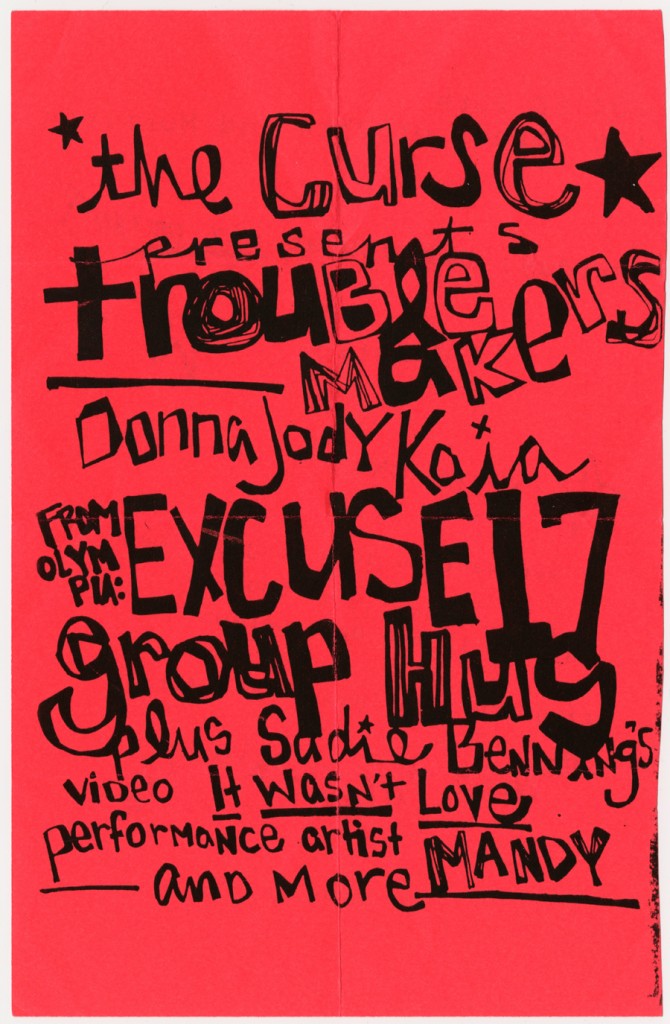 the Curse
presents
trouBleMakers
Donna Jody Kaia
FROM OLYMPIA: EXCUSE17
group Hug
plus Sadie BENNiNg's
viDeo It wasn't Love
performaNce artist MANDY
anD More